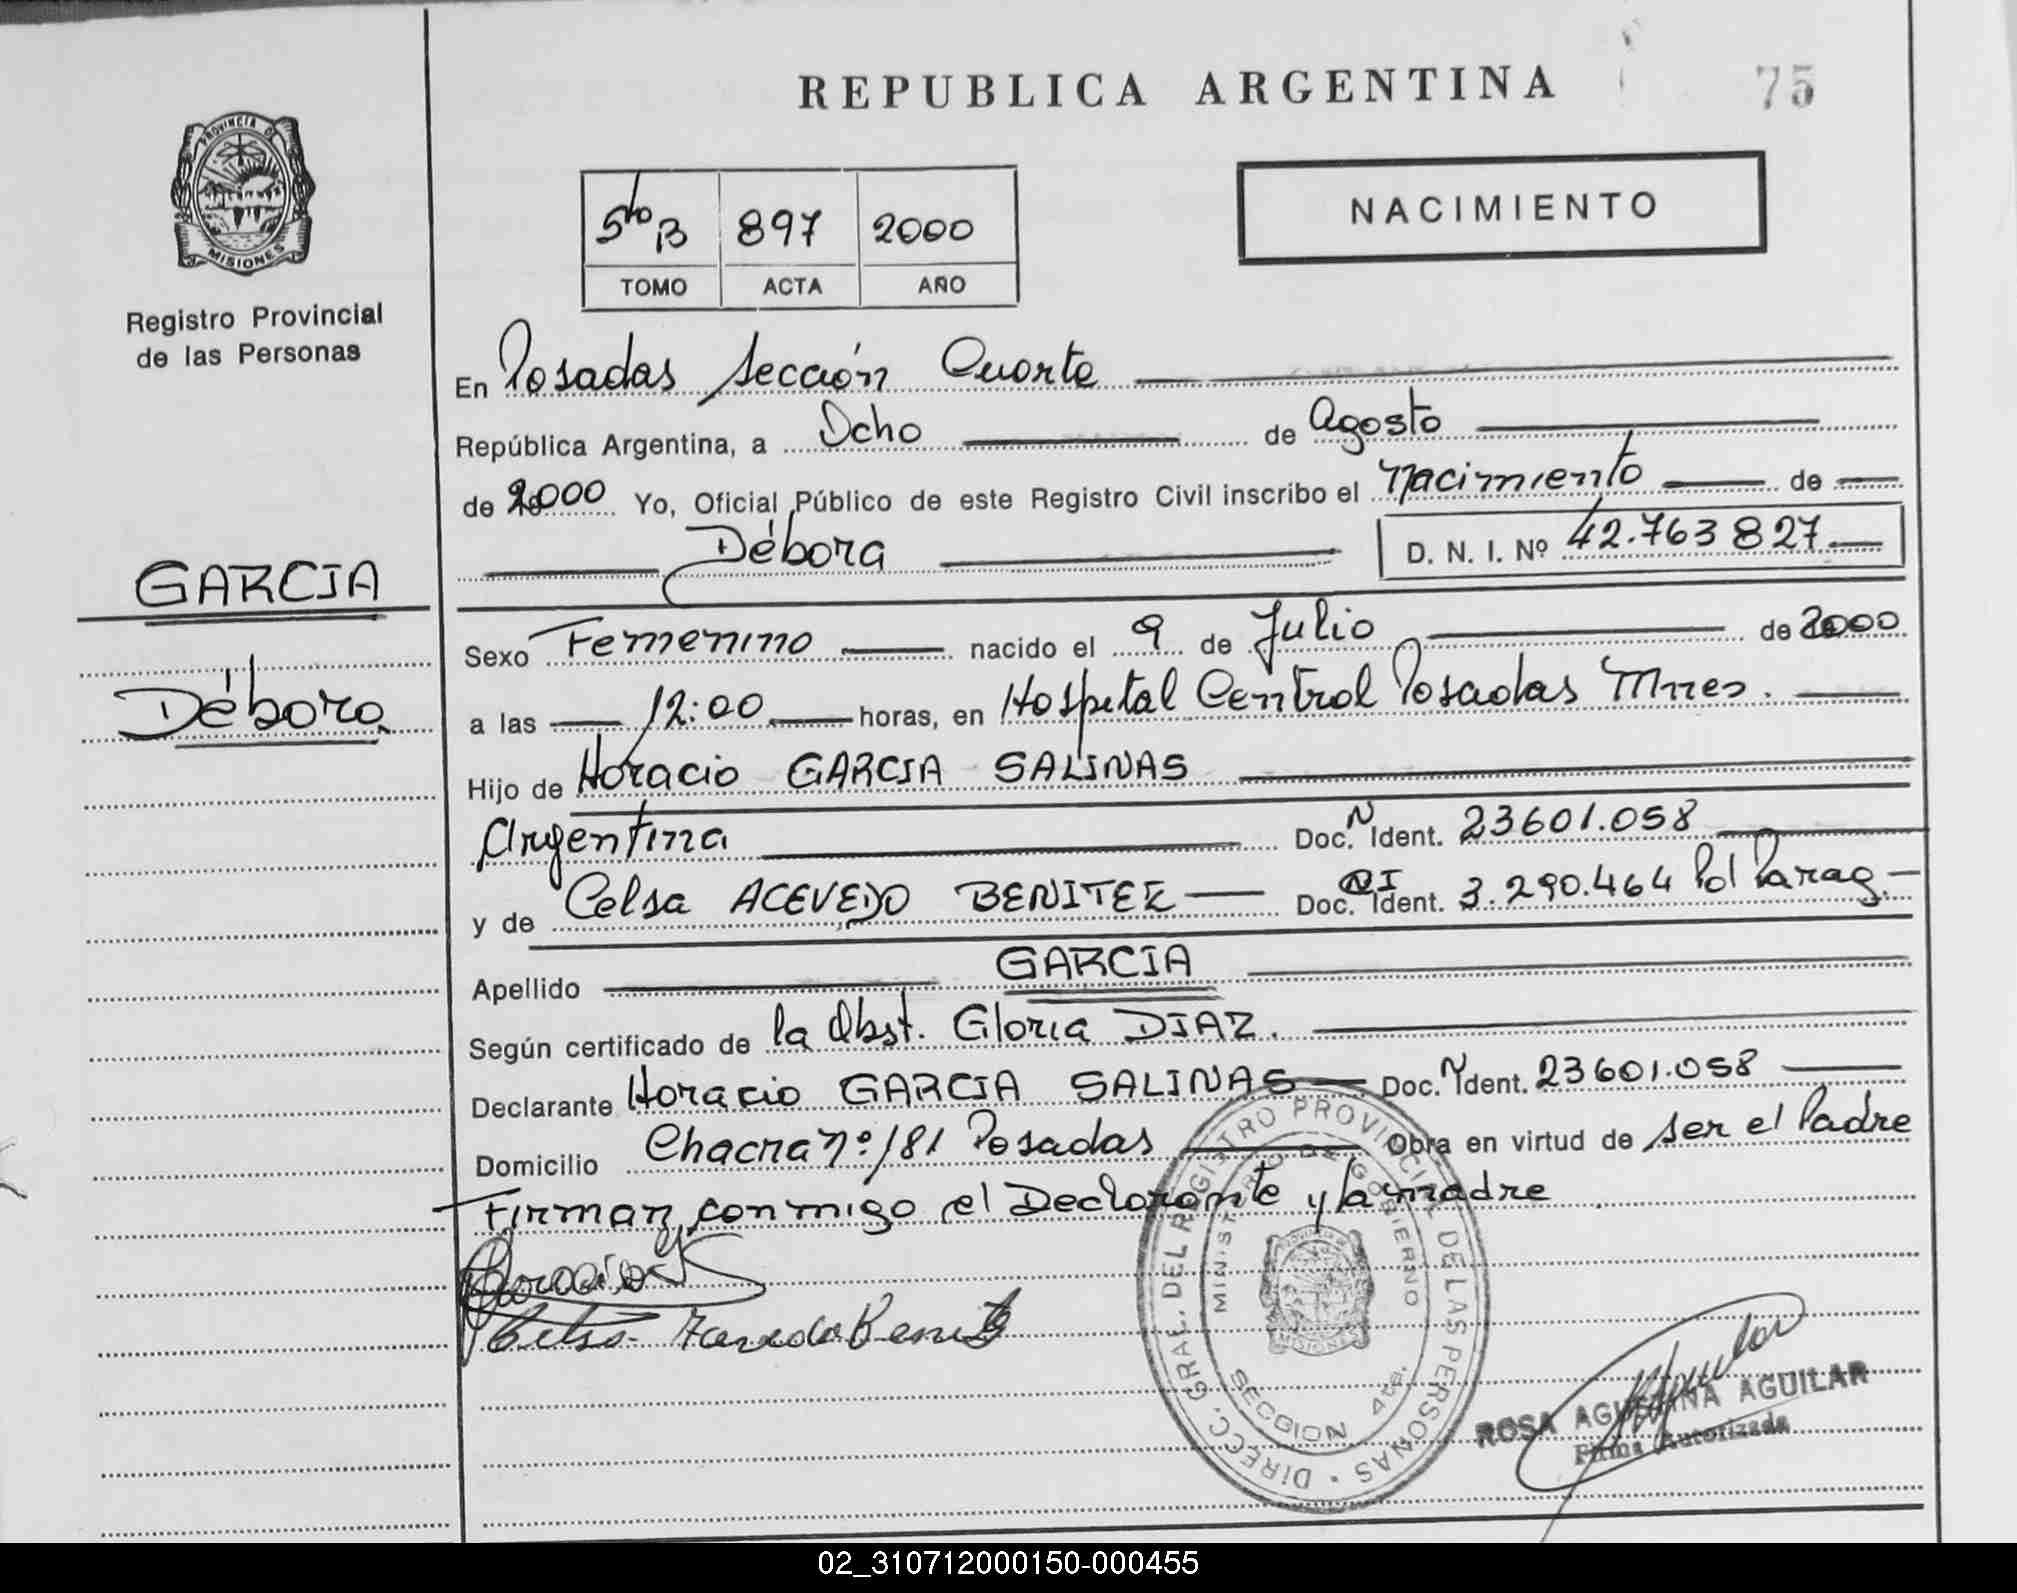 REPUBLICA ARGENTINA
75
PROVINCIA DE
MISIONES
Registro Provincial
de las Personas
5to B 897 2000
TOMO ACTA AÑO
NACIMIENTO
En Posadas Sección Cuarta
República Argentina, a Ocho de Agosto
de 2000 Yo, Oficial Público de este Registro Civil inscribo el Nacimiento de
Débora D. N. I. Nº 42.763827
GARCIA
Débora
Sexo Femenino nacido el 9 de Julio de 2000
a las 12:00 horas, en Hospital Central Posadas Mnes.
Hijo de Horacio GARCIA SALINAS
Argentina Doc. N Ident. 23601.058
y de Celsa ACEVEDO BENITEZ Doc. Ident. 3.290.464 Pol Parag.
Apellido GARCIA
Según certificado de la Obst. Gloria DIAZ.
Declarante Horacio GARCIA SALINAS Doc. N Ident. 23601.058
Domicilio Chacra nº 181 Posadas Obra en virtud de ser el Padre
Firman conmigo el Declarante y la madre
DIRECC. GRAL. DEL REGISTRO PROVINCIAL DE LAS PERSONAS
MINISTERIO DE GOBIERNO
SECCION 4ta.
PROVINCIA DE
MISIONES
ROSA AGUSTINA AGUILAR
Firma Autorizada
02_310712000150-000455